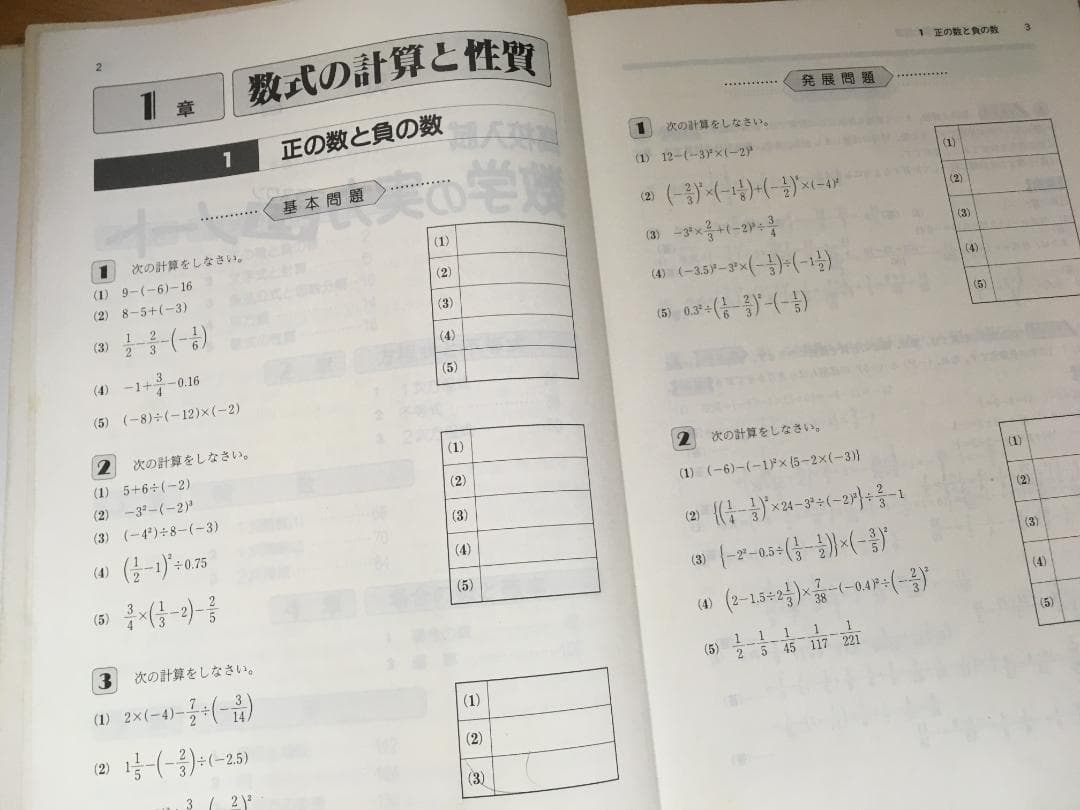 2
1章
数式の計算と性質
1 正の数と負の数
基本問題
1 次の計算をしなさい。
(1) 9−(−6)−16
(2) 8−5+(−3)
(3) 1/2−2/3−(−1/6)
(4) −1+3/4−0.16
(5) (−8)÷(−12)×(−2)
(1)
(2)
(3)
(4)
(5)
2 次の計算をしなさい。
(1) 5+6÷(−2)
(2) −3²−(−2)³
(3) (−4²)÷8−(−3)
(4) (1/2−1)²÷0.75
(5) 3/4×(1/3−2)−2/5
(1)
(2)
(3)
(4)
(5)
3 次の計算をしなさい。
(1) 2×(−4)−7/2÷(−3/14)
(2) 1 1/5−(−2/3)÷(−2.5)
(1)
(2)
(3)
1 正の数と負の数 3
発展問題
1 次の計算をしなさい。
(1) 12−(−3)²×(−2)³
(2) (−2/3)²×(−1 1/8)+(−1/2)²×(−4)²
(3) −3²×2/3+(−2)³÷3/4
(4) (−3.5)²−3²×(−1/3)÷(−1 1/2)
(5) 0.3²÷(1/6−2/3)²−(−1/5)
(1)
(2)
(3)
(4)
(5)
2 次の計算をしなさい。
(1) (−6)−(−1)²×{5−2×(−3)}
(2) {(1/4−1/3)²×24−3²÷(−2)²}÷2/3−1
(3) {−2²−0.5÷(1/3−1/2)}×(−3/5)²
(4) (2−1.5÷2 1/3)×7/38−(−0.4)²÷(−2/3)²
(5) 1/2−1/5−1/45−1/117−1/221
(1)
(2)
(3)
(4)
(5)